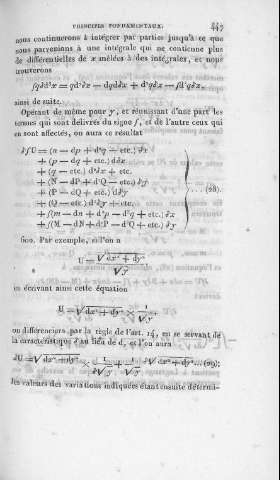 PRINCIPES FONDAMENTAUX. 447
nous continuerons à intégrer par parties jusqu'à ce que
nous parvenions à une intégrale qui ne contienne plus
de différentielles de x mêlées à des intégrales, et nous
trouverons
∫qdd²x = qd²∂x − dqd∂x + d²q∂x − ∫d³q∂x,
ainsi de suite.
Opérant de même pour y, et réunissant d'une part les
termes qui sont délivrés du signe ∫, et de l'autre ceux qui
en sont affectés, on aura ce résultat
∂∫U = (n − dp + d²q − etc.) ∂x
+ (p − dq + etc.) d∂x
+ (q − etc.) d²∂x + etc.
+ (N − dP + d²Q − etc.) ∂y
+ (P − dQ + etc.) d∂y
+ (Q − etc.) d²∂y + etc.
+ ∫(m − dn + d²p − d³q + etc.) ∂x
+ ∫(M − dN + d²P − d³Q + etc.) ∂y
....(98).
600. Par exemple, si l'on a
U = √dx² + dy² / √y,
en écrivant ainsi cette équation
U = √dx² + dy² × 1/√y,
on différenciera par la règle de l'art. 14, en se servant de
la caractéristique ∂ au lieu de d, et l'on aura
∂U = √dx² + dy² × ∂ 1/√y + 1/√y ∂√dx² + dy²...(99);
les valeurs des variations indiquées étant ensuite détermi-